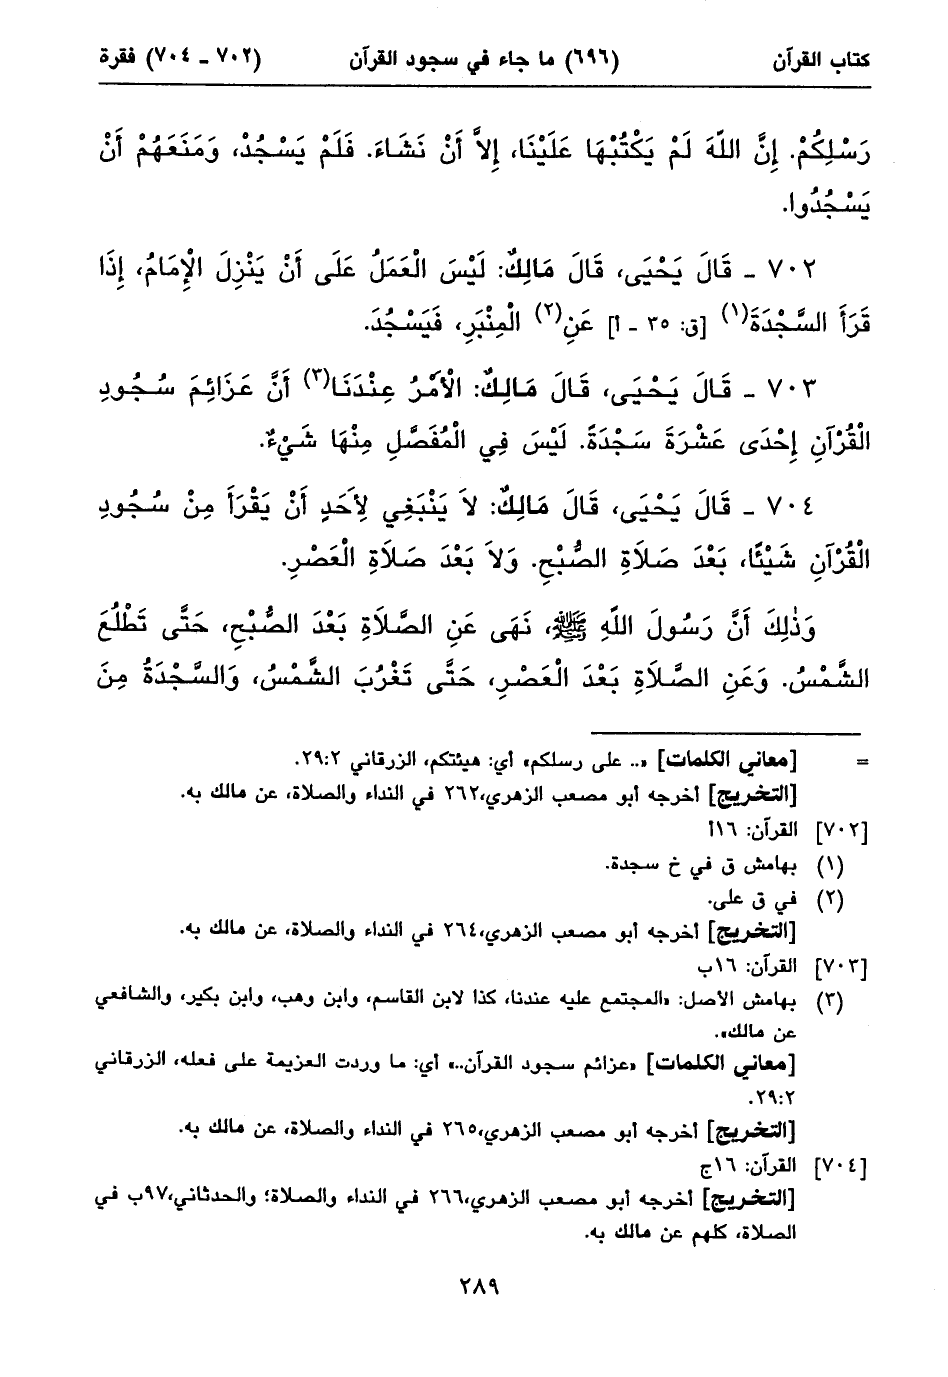 كتاب القرآن (٦٩٦) ما جاء في سجود القرآن (٧٠٢ ـ ٧٠٤) فقرة
رَسْلِكُمْ. إِنَّ اللّهَ لَمْ يَكْتُبْهَا عَلَيْنَا، إِلاَّ أَنْ نَشَاءَ. فَلَمْ يَسْجُدْ، وَمَنَعَهُمْ أَنْ
يَسْجُدُوا.
٧٠٢ ـ قَالَ يَحْيَى، قَالَ مَالِكٌ: لَيْسَ الْعَمَلُ عَلَى أَنْ يَنْزِلَ الْإِمَامُ، إِذَا
قَرَأَ السَّجْدَةَ(١) [ق: ٣٥ ـ أ] عَنِ(٢) الْمِنْبَرِ، فَيَسْجُدَ.
٧٠٣ ـ قَالَ يَحْيَى، قَالَ مَالِكٌ: الْأَمْرُ عِنْدَنَا(٣) أَنَّ عَزَائِمَ سُجُودِ
الْقُرْآنِ إِحْدَى عَشْرَةَ سَجْدَةً. لَيْسَ فِي الْمُفَصَّلِ مِنْهَا شَيْءٌ.
٧٠٤ ـ قَالَ يَحْيَى، قَالَ مَالِكٌ: لاَ يَنْبَغِي لِأَحَدٍ أَنْ يَقْرَأَ مِنْ سُجُودِ
الْقُرْآنِ شَيْئًا، بَعْدَ صَلاَةِ الصُّبْحِ. وَلاَ بَعْدَ صَلاَةِ الْعَصْرِ.
وَذٰلِكَ أَنَّ رَسُولَ اللّهِ ﷺ، نَهَى عَنِ الصَّلاَةِ بَعْدَ الصُّبْحِ، حَتَّى تَطْلُعَ
الشَّمْسُ. وَعَنِ الصَّلاَةِ بَعْدَ الْعَصْرِ، حَتَّى تَغْرُبَ الشَّمْسُ، وَالسَّجْدَةُ مِنَ
= [معاني الكلمات] «.. على رسلكم» أي: هيئتكم، الزرقاني ٢٩:٢.
[التخريج] أخرجه أبو مصعب الزهري، ٢٦٢ في النداء والصلاة، عن مالك به.
[٧٠٢] القرآن: ١٦أ
(١) بهامش ق في خ سجدة.
(٢) في ق على.
[التخريج] أخرجه أبو مصعب الزهري، ٢٦٤ في النداء والصلاة، عن مالك به.
[٧٠٣] القرآن: ١٦ب
(٣) بهامش الأصل: «المجتمع عليه عندنا، كذا لابن القاسم، وابن وهب، وابن بكير، والشافعي
عن مالك».
[معاني الكلمات] «عزائم سجود القرآن..» أي: ما وردت العزيمة على فعله، الزرقاني
٢٩:٢.
[التخريج] أخرجه أبو مصعب الزهري، ٢٦٥ في النداء والصلاة، عن مالك به.
[٧٠٤] القرآن: ١٦ج
[التخريج] أخرجه أبو مصعب الزهري، ٢٦٦ في النداء والصلاة؛ والحدثاني، ٩٧ب في
الصلاة، كلهم عن مالك به.
٢٨٩